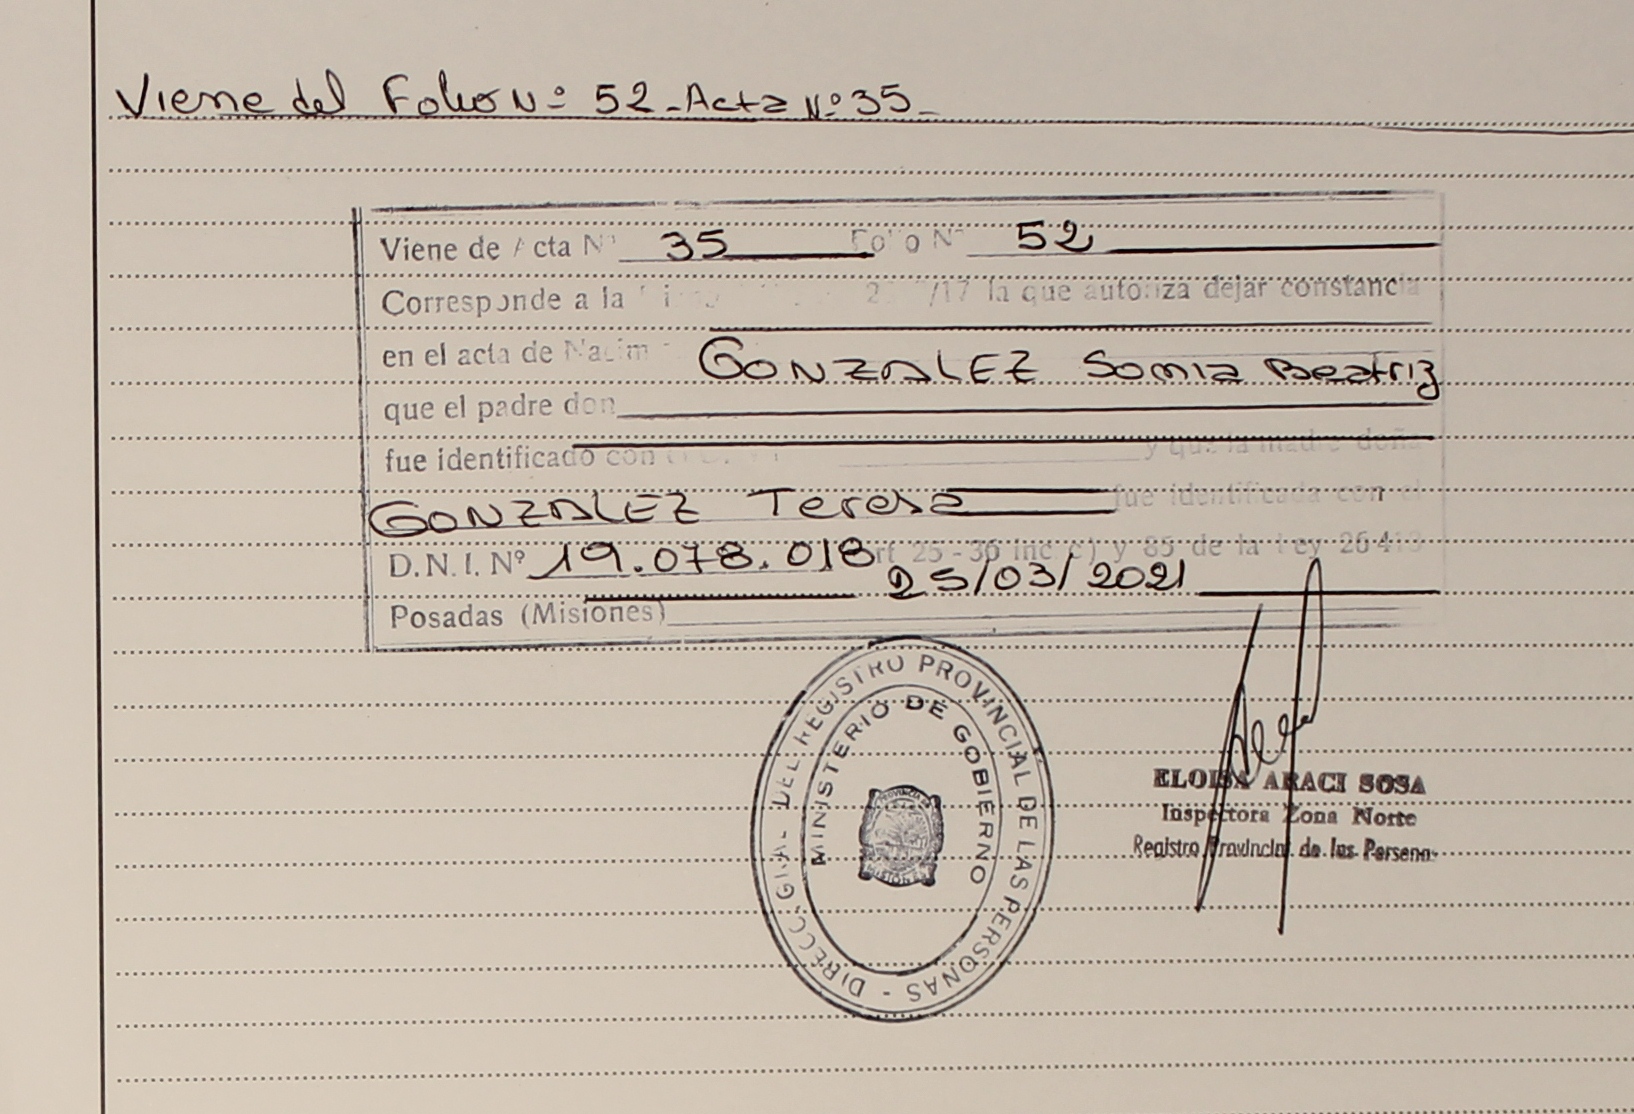 Viene del Folio Nº 52 - Acta Nº 35 -
Viene de Acta Nº 35 Folio Nº 52
Corresponde a la /17 la que autoriza dejar constancia
en el acta de Nacim GONZALEZ Sonia Beatriz
que el padre don
fue identificado con y que la madre doña
GONZALEZ Teresa fue identificada con el
D.N.I. Nº 19.078.018 art 25 - 36 inc c) y 85 de la Ley 26413
Posadas (Misiones) 25/03/2021
DIRECC. GRAL. DEL REGISTRO PROVINCIAL DE LAS PERSONAS -
MINISTERIO DE GOBIERNO
PROVINCIA DE
MISIONES
ELOISA ARACI SOSA
Inspectora Zona Norte
Registro Provincial de las Personas